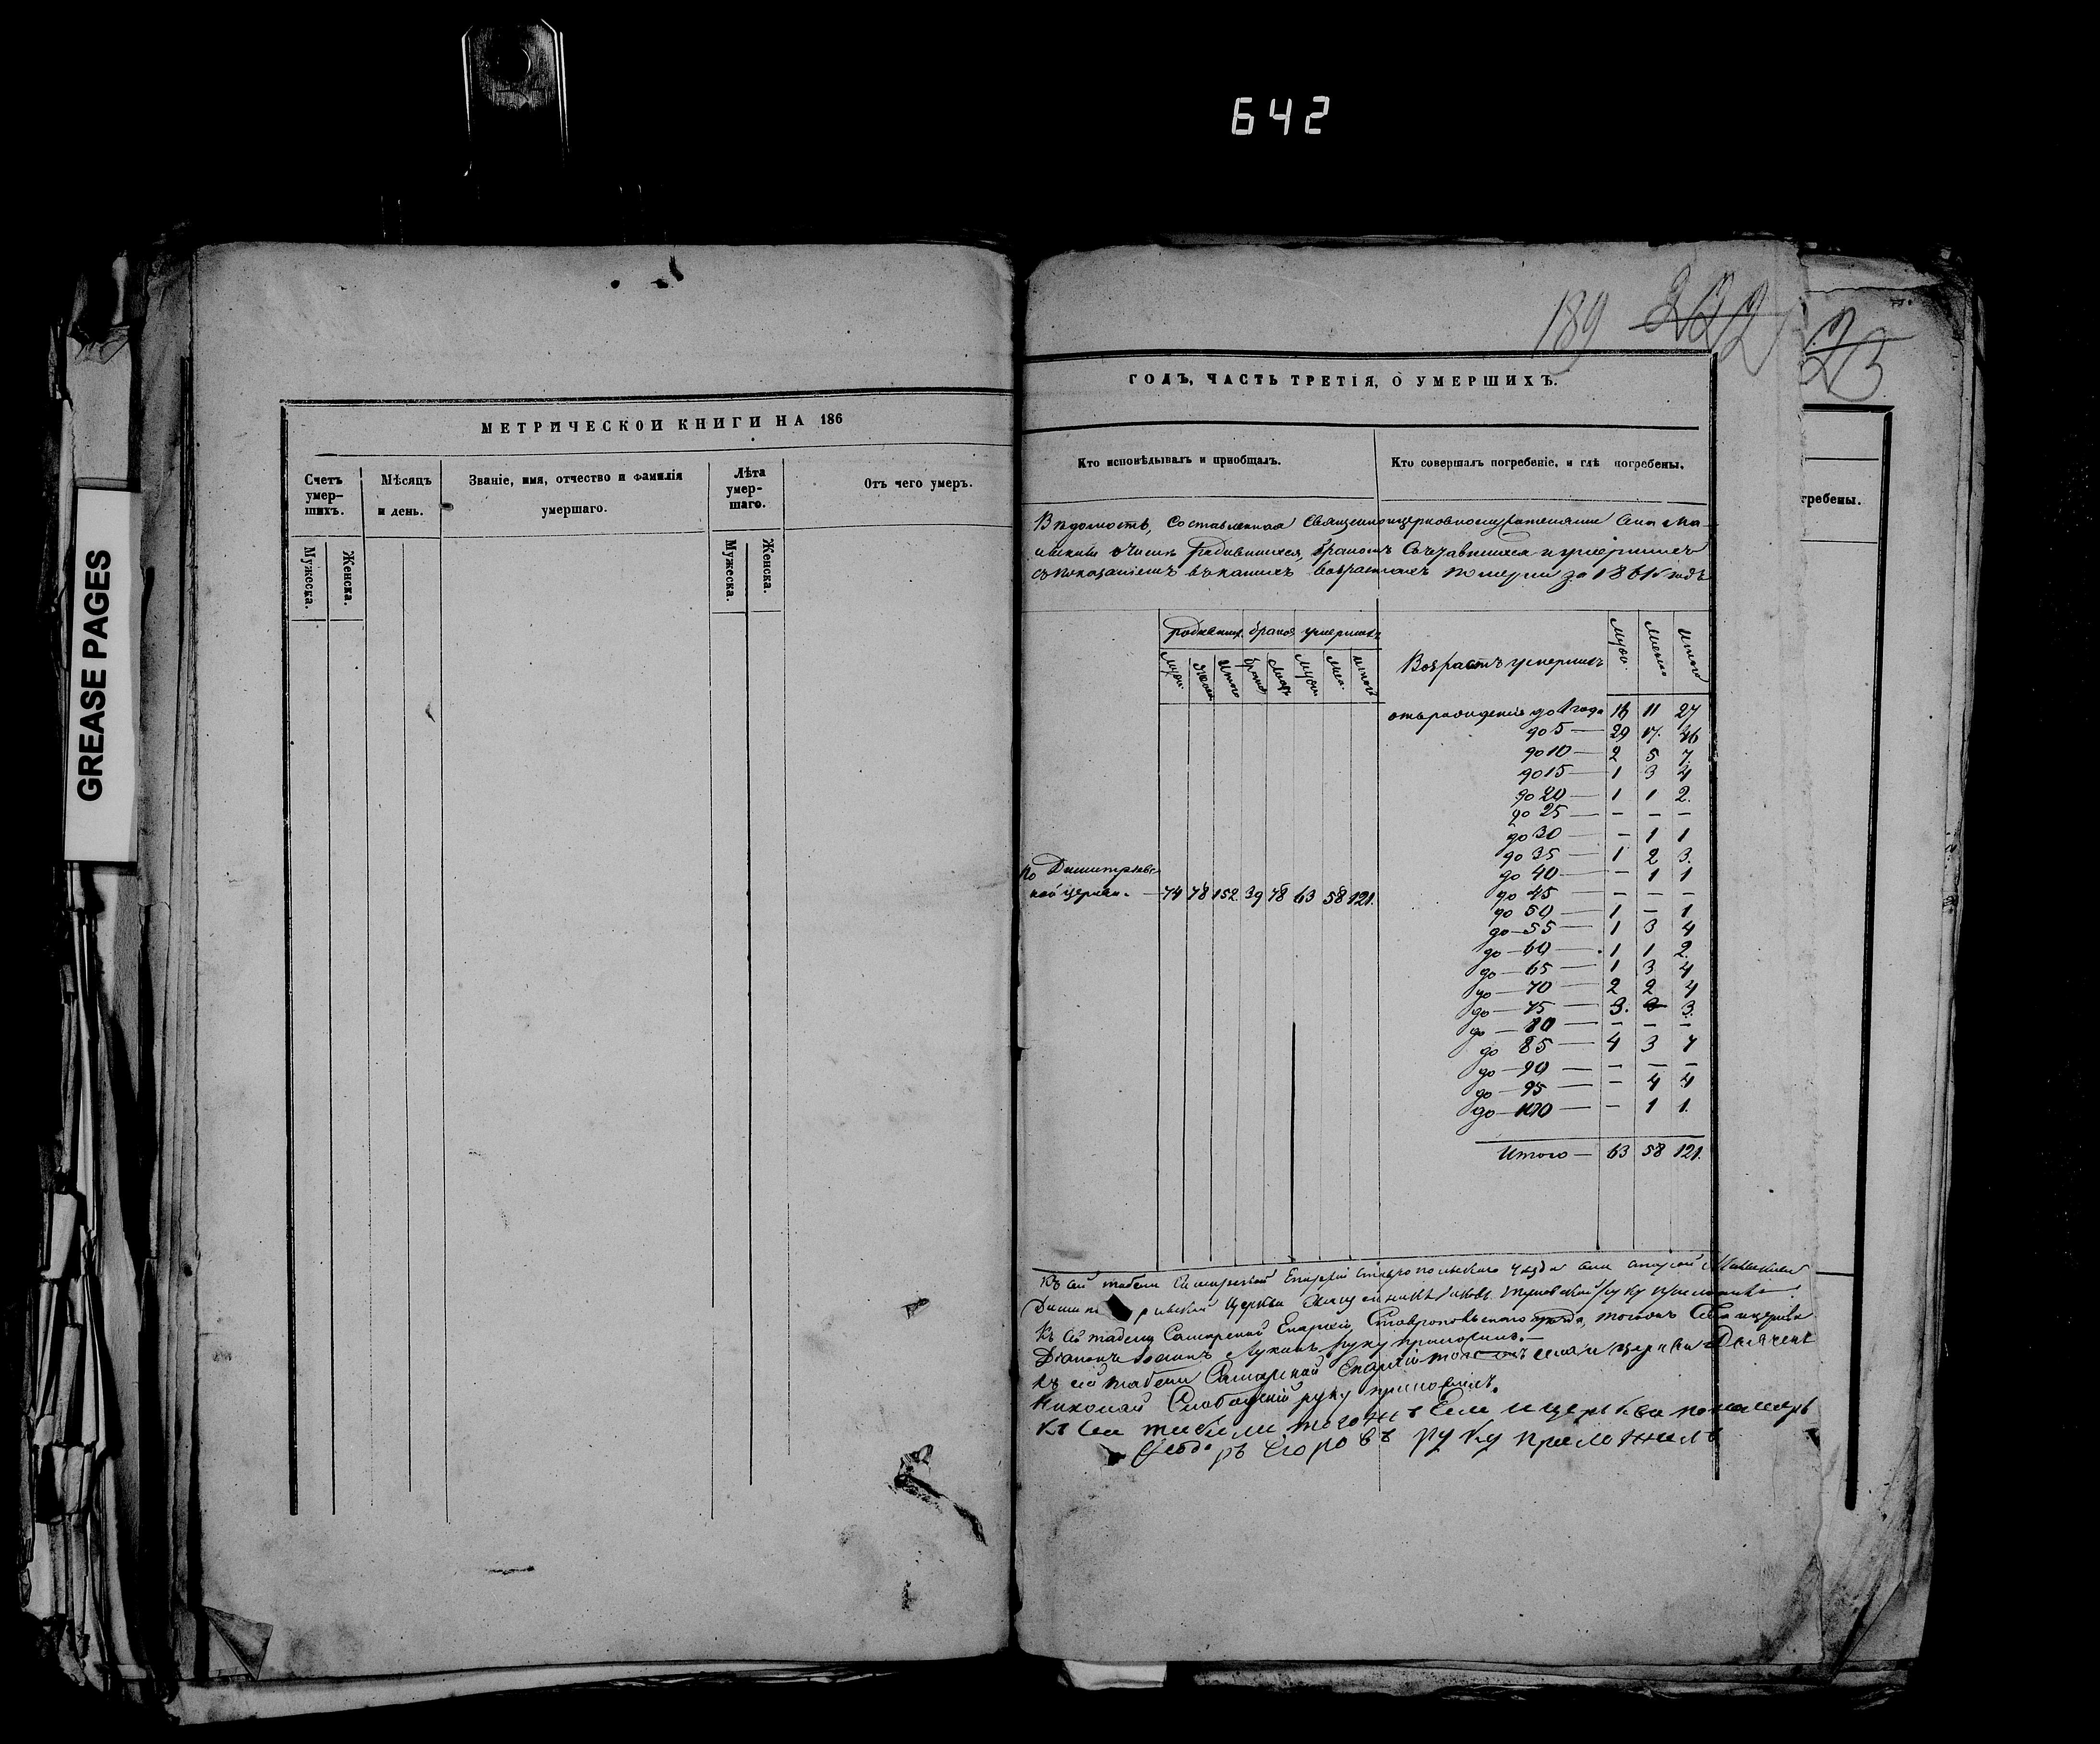 642
GREASE PAGES
МЕТРИЧЕСКОЙ КНИГИ НА 186
Счетъ умер-
шихъ.
Мѣсяцъ
и день.
Званіе, имя, отчество и фамилія
умершаго.
Лѣта
умер-
шаго.
Отъ чего умеръ.
Мужеска.
Женска.
Мужеска.
Женска.
189 222
23
ГОДЪ, ЧАСТЬ ТРЕТІЯ, О УМЕРШИХЪ.
Кто исповѣдывалъ и приобщалъ.
Кто совершалъ погребеніе, и гдѣ погребены.
гребены.
Вѣдомость, составленная священноцерковнослужителями села
о числѣ родившихся, бракомъ сочетавшихся и умершихъ
съ показаніемъ въ какихъ возрастахъ померли за 1861 годъ
родивших. браков умерших
Возрастъ умершихъ
Итого
отъ рожденія до 1 года 16 11 27
до 5 — 29 17. 46
до 10 — 2 5 7.
до 15 — 1 3 4
до 20 — 1 1 2.
до 25 — — — —
до 30 — — 1 1
до 35 — 1 2 3.
до 40 — — 1 1
до 45 — — — —
до 50 — 1 — 1
до — 55 — 1 3 4
до — 60 — 1 1 2.
до — 65 — 1 3 4
до — 70 — 2 2 4
до — 75 — 3. — 3.
до — 80 — — — —
до 85 — 4 3 7
до — 90 — — — —
до — 95 — — 4 4
до — 100 — — 1 1.
Итого — 63 58 121.
по Димитріевс-
кой церкви. — 74 78 152. 39 78 63 58 121.
Къ сей табели Самарской Епархіи Ставропольскаго уѣзда села
церкви Священникъ руку приложилъ
Къ сей табели Самарской Епархіи, Ставропольскаго уѣзда, тогожъ села церкви
Діаконъ Іоаннъ Лукинъ руку приложилъ. —
Къ сей табели Самарской Епархіи тогожъ села и церкви Дьячекъ
Николай Слободскій руку приложилъ.
Къ сей табели тогожъ села и церкви пономарь
Федоръ Егоровъ руку приложилъ